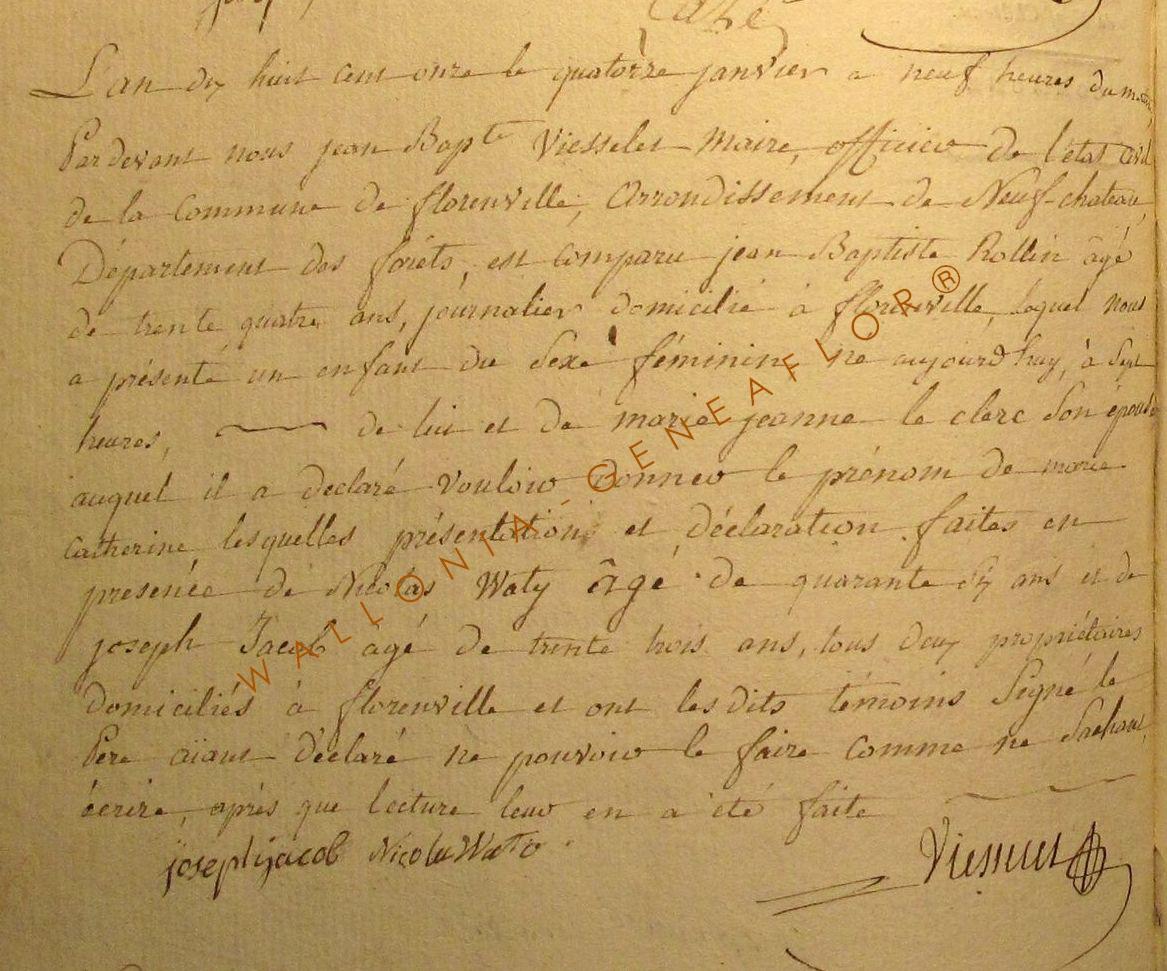 L'an dix huit cent onze le quatorze janvier a neuf heures du matin
Pardevant nous jean Bapte Viesselet Maire, officier de l'état Civil
de la Commune de florenville, Arrondissement de Neuf-chateau,
Département des forêts, est comparu jean Baptiste Rollin âgé
de trente quatre ans, journalier domicilié à florenville, lequel nous
a présenté un enfant du Sexe féminin né aujourd'huy, à Sept
heures, de lui et de marie jeanne le clerc Son épouse
auquel il a declaré Vouloir donner le prénom de marie
catherine lesquelles présentation et déclaration faites en
presence de Nicolas Waty âgé de quarante Six ans et de
joseph Jacob âgé de trente trois ans, tous deux propriétaires
domiciliés à florenville et ont les dits témoins Signé le
Pere aïant déclaré ne pouvoir le faire comme ne Sachant
écrire, après que lecture leur en a été faite
joseph jacob Nicolas
WALLONIA-GENEAFLOR®